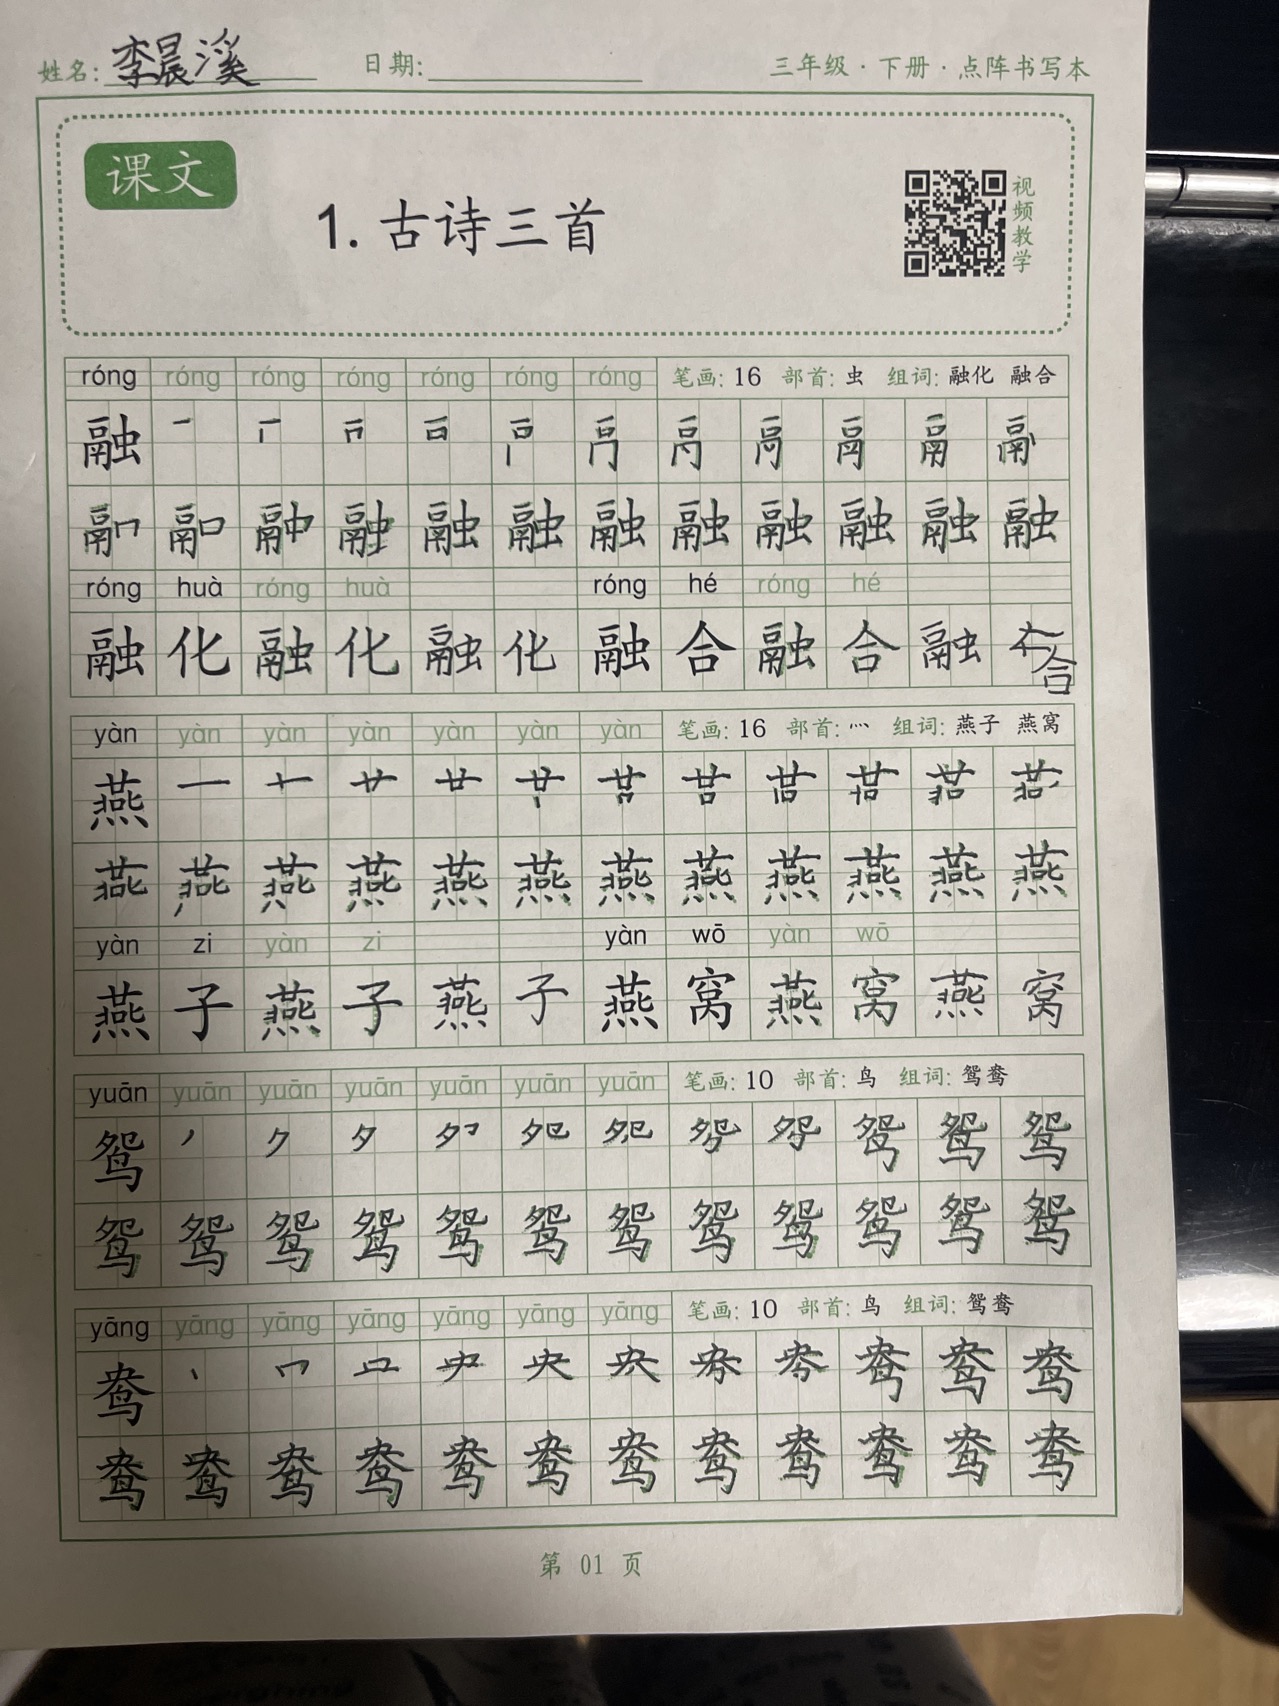 姓名: 李晨溪 日期: 三年级·下册·点阵书写本
课文
1. 古诗三首
视频教学
róng róng róng róng róng róng róng 笔画: 16 部首: 虫 组词: 融化 融合
融
融 融 融 融 融 融 融 融 融
róng huà róng huà róng hé róng hé
融 化 融 化 融 化 融 合 融 合 融 合
yàn yàn yàn yàn yàn yàn yàn 笔画: 16 部首: 灬 组词: 燕子 燕窝
燕 一 十 廿
燕 燕 燕 燕 燕 燕 燕 燕
yàn zi yàn zi yàn wō yàn wō
燕 子 燕 子 燕 子 燕 窝 燕 窝 燕 窝
yuān yuān yuān yuān yuān yuān yuān 笔画: 10 部首: 鸟 组词: 鸳鸯
鸳 丿 ク 夕 夗 鸳 鸳
鸳 鸳 鸳 鸳 鸳 鸳 鸳 鸳 鸳 鸳 鸳 鸳
yāng yāng yāng yāng yāng yāng yāng 笔画: 10 部首: 鸟 组词: 鸳鸯
鸯 丶 冖 央 央 鸯 鸯
鸯 鸯 鸯 鸯 鸯 鸯 鸯 鸯 鸯 鸯 鸯 鸯
第 01 页